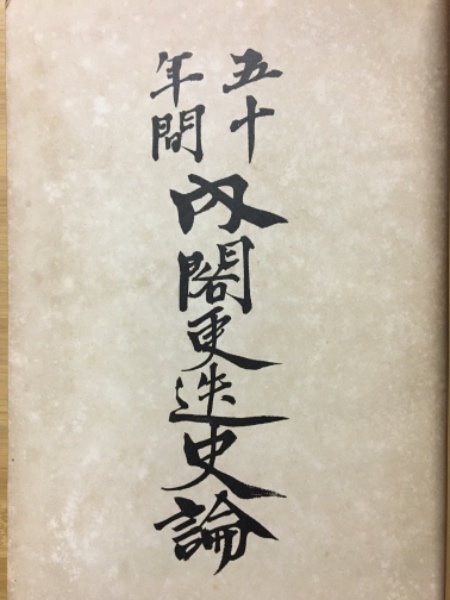 五十
年間
内閣更迭史論